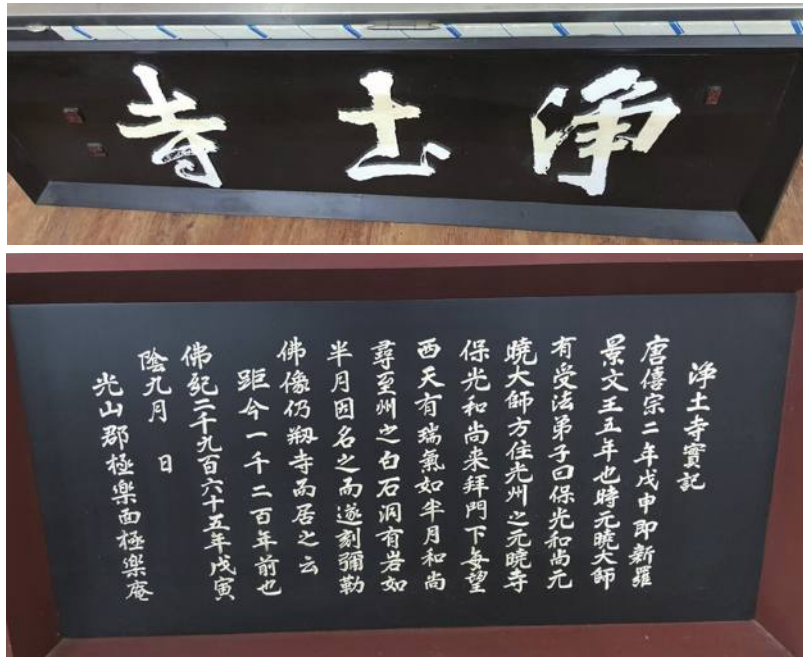 淨土寺
淨土寺實記
唐僖宗二年戊申即新羅
景文王五年也時元曉大師
有受法弟子曰保光和尚元
曉大師方住光州之元曉寺
保光和尚来拜門下每望
西天有瑞氣如半月和尚
尋至州之白石洞有岩如
半月因名之而遂刻彌勒
佛像仍刱寺而居之云
距今一千二百年前也
佛紀二千九百六十五年戊寅
陰九月 日
光山郡極樂面極樂庵